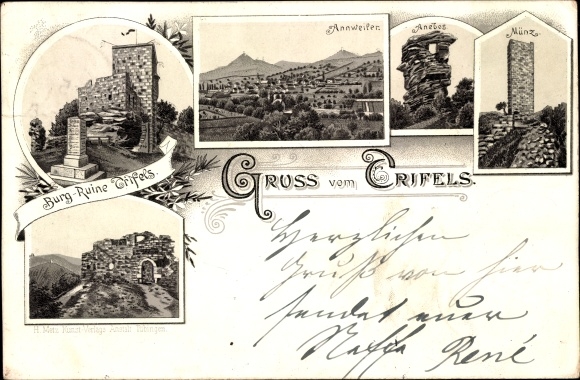 Annweiler.
Anebos
Münz.
Burg-Ruine Trifels.
Gruss vom Trifels.
Herzlichen
Gruß von hier
sendet euer
Neffe René
H. Metz Kunst-Verlags Anstalt Tübingen